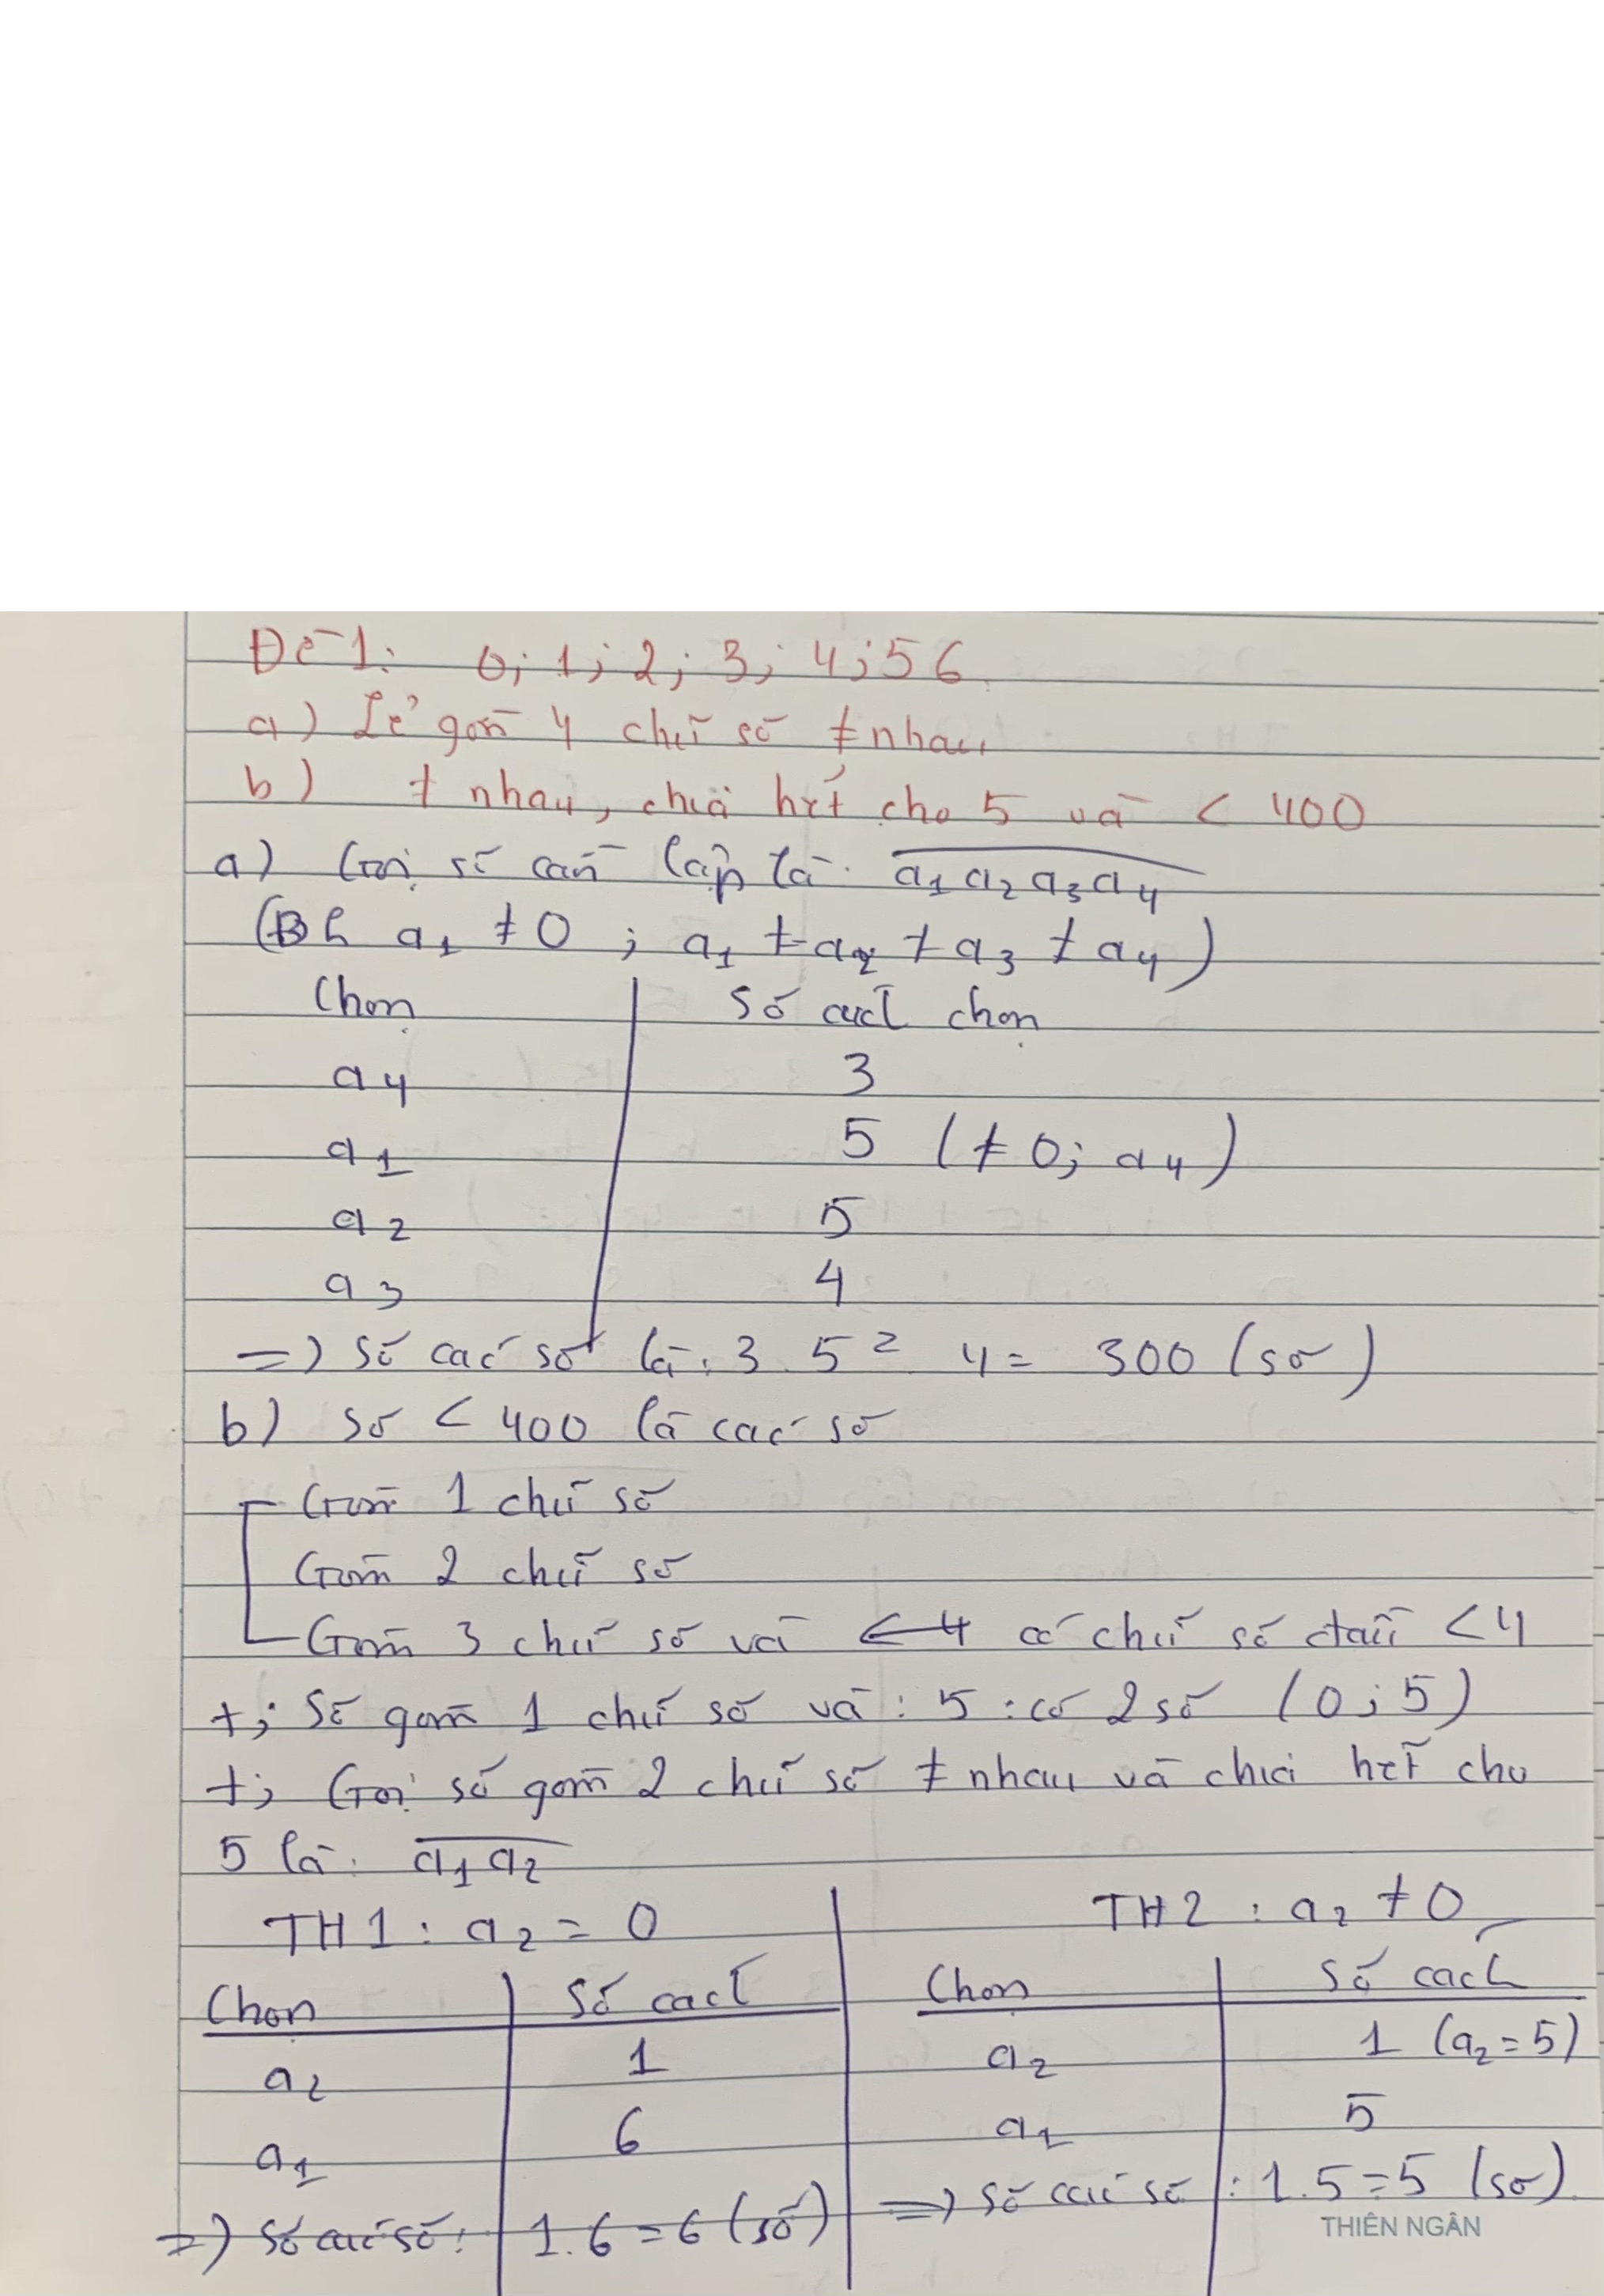 Đề 1: 0; 1; 2; 3; 4; 5 6
a) Lẻ gồm 4 chữ số ≠ nhau
b) ≠ nhau, chia hết cho 5 và < 400
a) Gọi số cần lập là: a1a2a3a4
(Đk a1 ≠ 0 ; a1 ≠ a2 ≠ a3 ≠ a4)
Chọn Số cách chọn
a4 3
a1 5 (≠ 0; a4)
a2 5
a3 4
=) Số các số là: 3 . 5² . 4 = 300 (số)
b) Số < 400 là các số
Gồm 1 chữ số
Gồm 2 chữ số
Gồm 3 chữ số và có chữ số đầu < 4
+; Số gồm 1 chữ số và ⋮ 5 : có 2 số (0; 5)
+; Gọi số gồm 2 chữ số ≠ nhau và chia hết cho
5 là: a1a2
TH1 : a2 = 0 TH2 : a2 ≠ 0
Chọn Số cách Chọn Số cách
a2 1 a2 1 (a2 = 5)
a1 6 a1 5
=) Số các số: 1.6 = 6 (số) =) Số các số : 1.5 = 5 (số)
THIÊN NGÂN